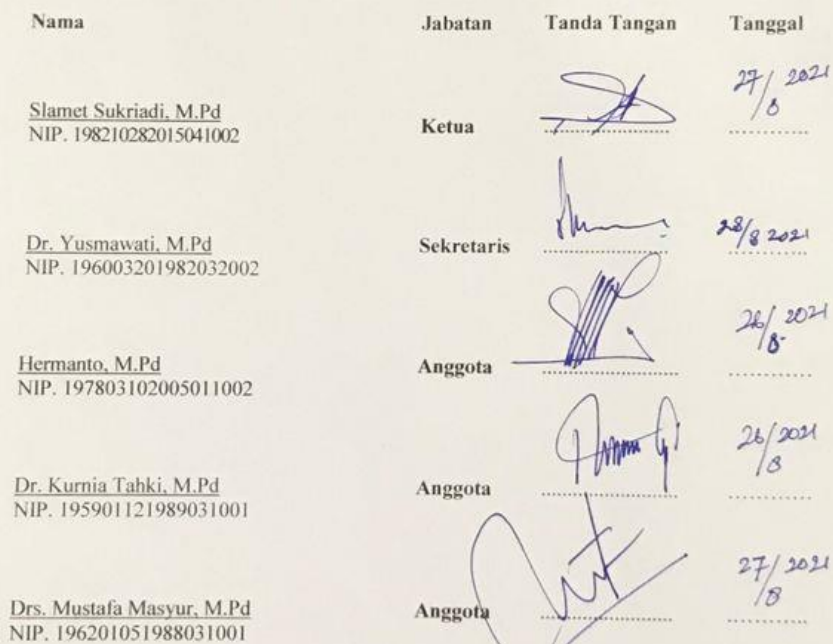 Nama Jabatan Tanda Tangan Tanggal
Slamet Sukriadi, M.Pd
NIP. 198210282015041002
Ketua
27/8 2021
Dr. Yusmawati, M.Pd
NIP. 196003201982032002
Sekretaris
28/8 2021
Hermanto, M.Pd
NIP. 197803102005011002
Anggota
26/8 2021
Dr. Kurnia Tahki, M.Pd
NIP. 195901121989031001
Anggota
26/8 2021
Drs. Mustafa Masyur, M.Pd
NIP. 196201051988031001
Anggota
27/8 2021